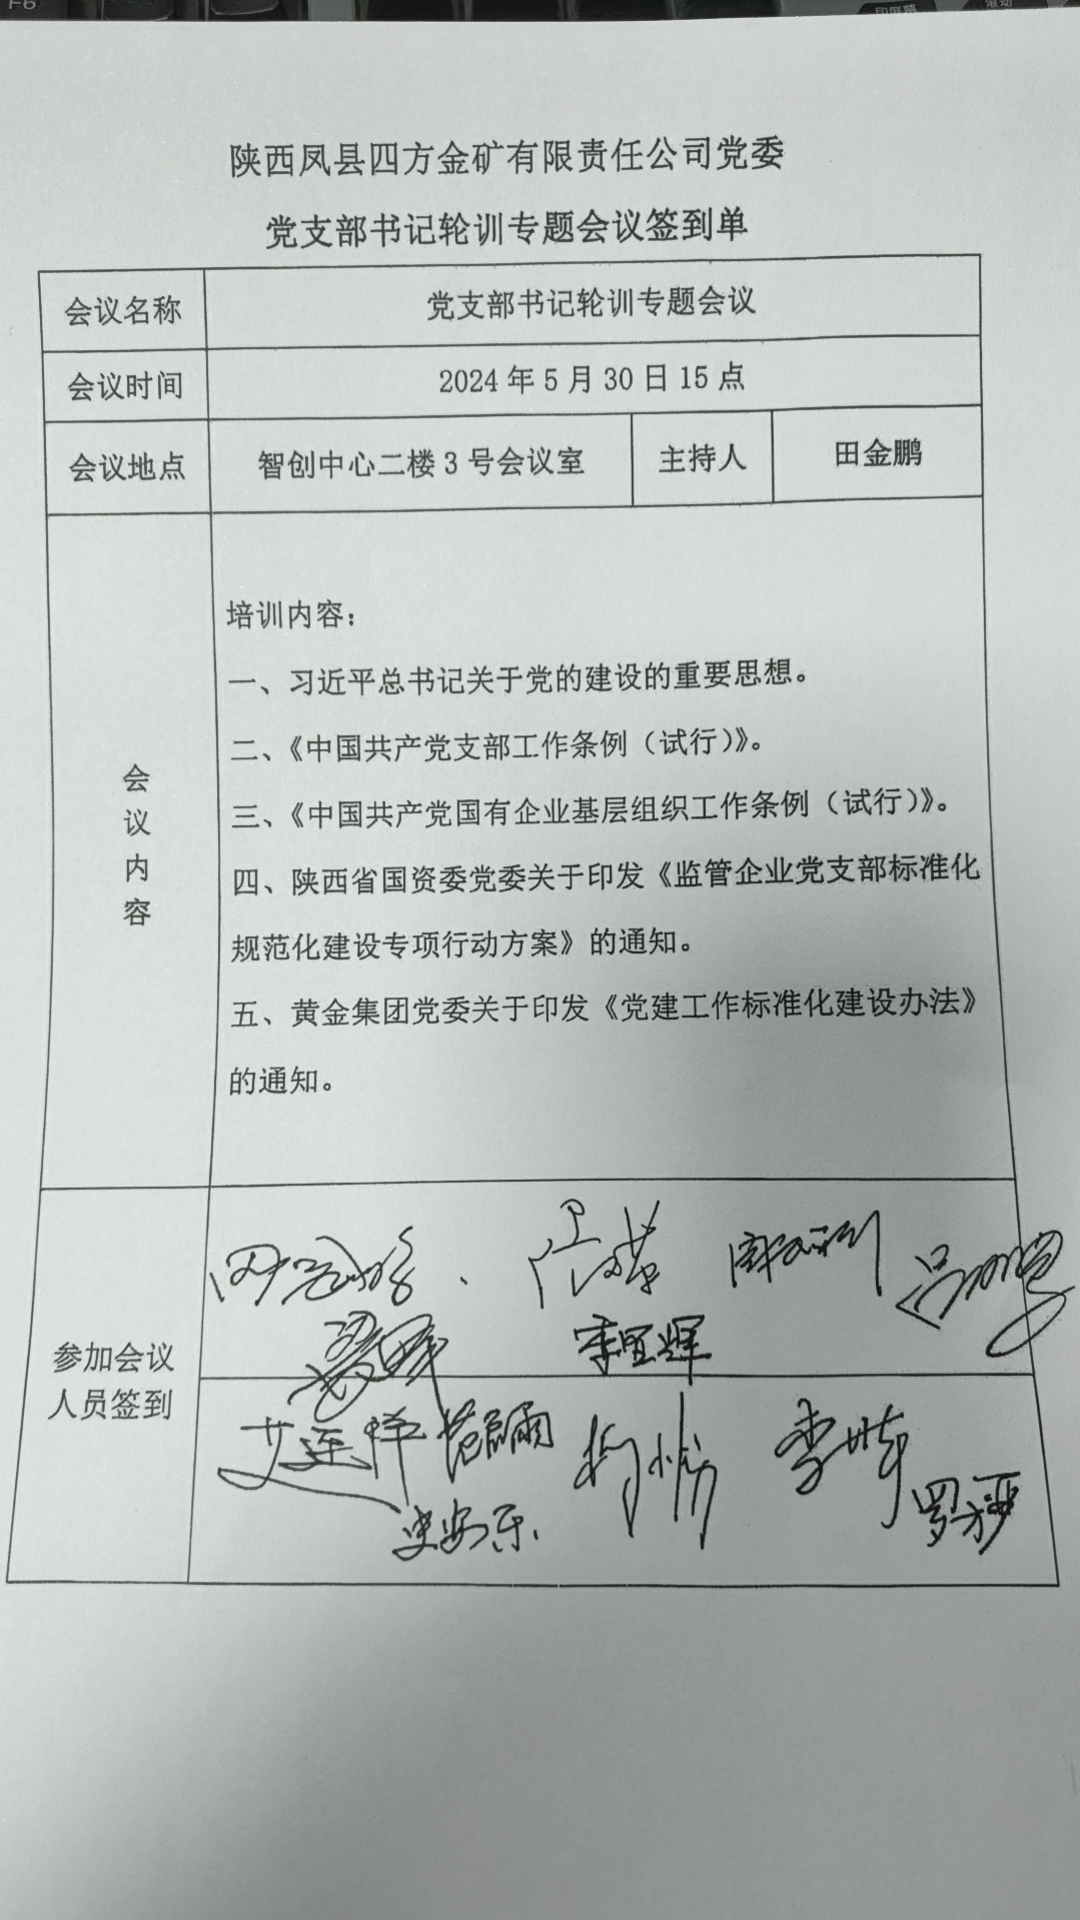 F6
陕西凤县四方金矿有限责任公司党委
党支部书记轮训专题会议签到单
会议名称 党支部书记轮训专题会议
会议时间 2024年5月30日15点
会议地点 智创中心二楼3号会议室 主持人 田金鹏
会议内容
培训内容：
一、习近平总书记关于党的建设的重要思想。
二、《中国共产党支部工作条例（试行）》。
三、《中国共产党国有企业基层组织工作条例（试行）》。
四、陕西省国资委党委关于印发《监管企业党支部标准化
规范化建设专项行动方案》的通知。
五、黄金集团党委关于印发《党建工作标准化建设办法》
的通知。
参加会议
人员签到
李宜辉